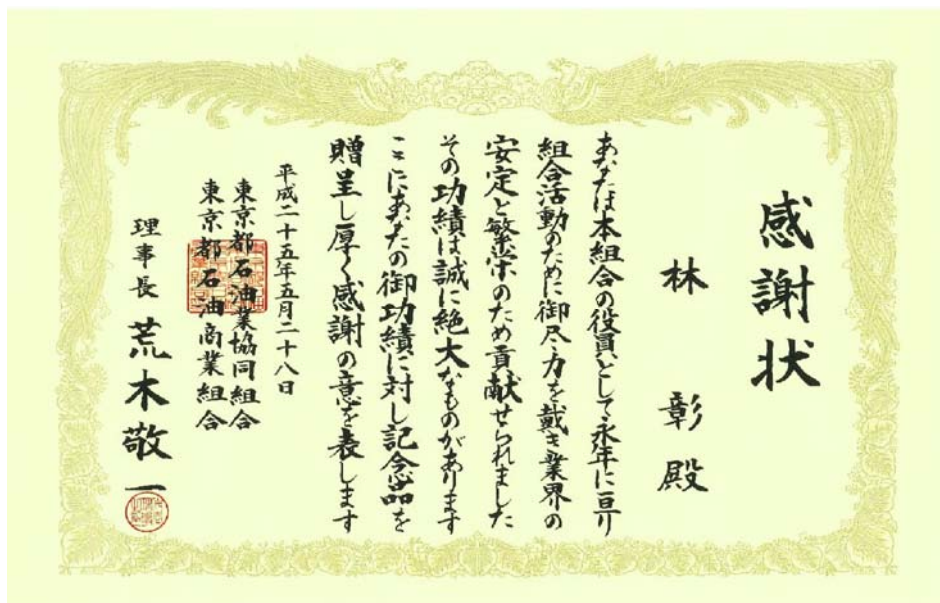 感謝状
林 彰 殿
あなたは本組合の役員として永年に亘り
組合活動のために御尽力を戴き業界の
安定と繁栄のため貢献せられました
その功績は誠に絶大なものがあります
ここにあなたの御功績に対し記念品を
贈呈し厚く感謝の意を表します
平成二十五年五月二十八日
東京都石油業協同組合
東京都石油商業組合
理事長 荒木敬一